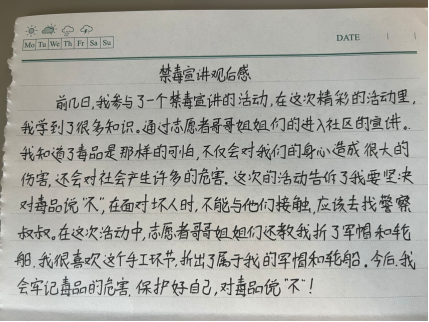 Mo Tu We Th Fr Sa Su
DATE
禁毒宣讲观后感
前几日,我参与了一个禁毒宣讲的活动,在这次精彩的活动里,
我学到了很多知识。通过志愿者哥哥姐姐们的进入社区的宣讲。
我知道了毒品是那样的可怕,不仅会对我们的身心造成很大的
伤害,还会对社会产生许多的危害。这次的活动告诉了我要坚决
对毒品说“不”,在面对坏人时,不能与他们接触,应该去找警察
叔叔。在这次活动中,志愿者哥哥姐姐们还教我折了军帽和轮
船,我很喜欢这个手工环节,折出了属于我的军帽和轮船。今后,我
会牢记毒品的危害,保护好自己,对毒品说“不”!